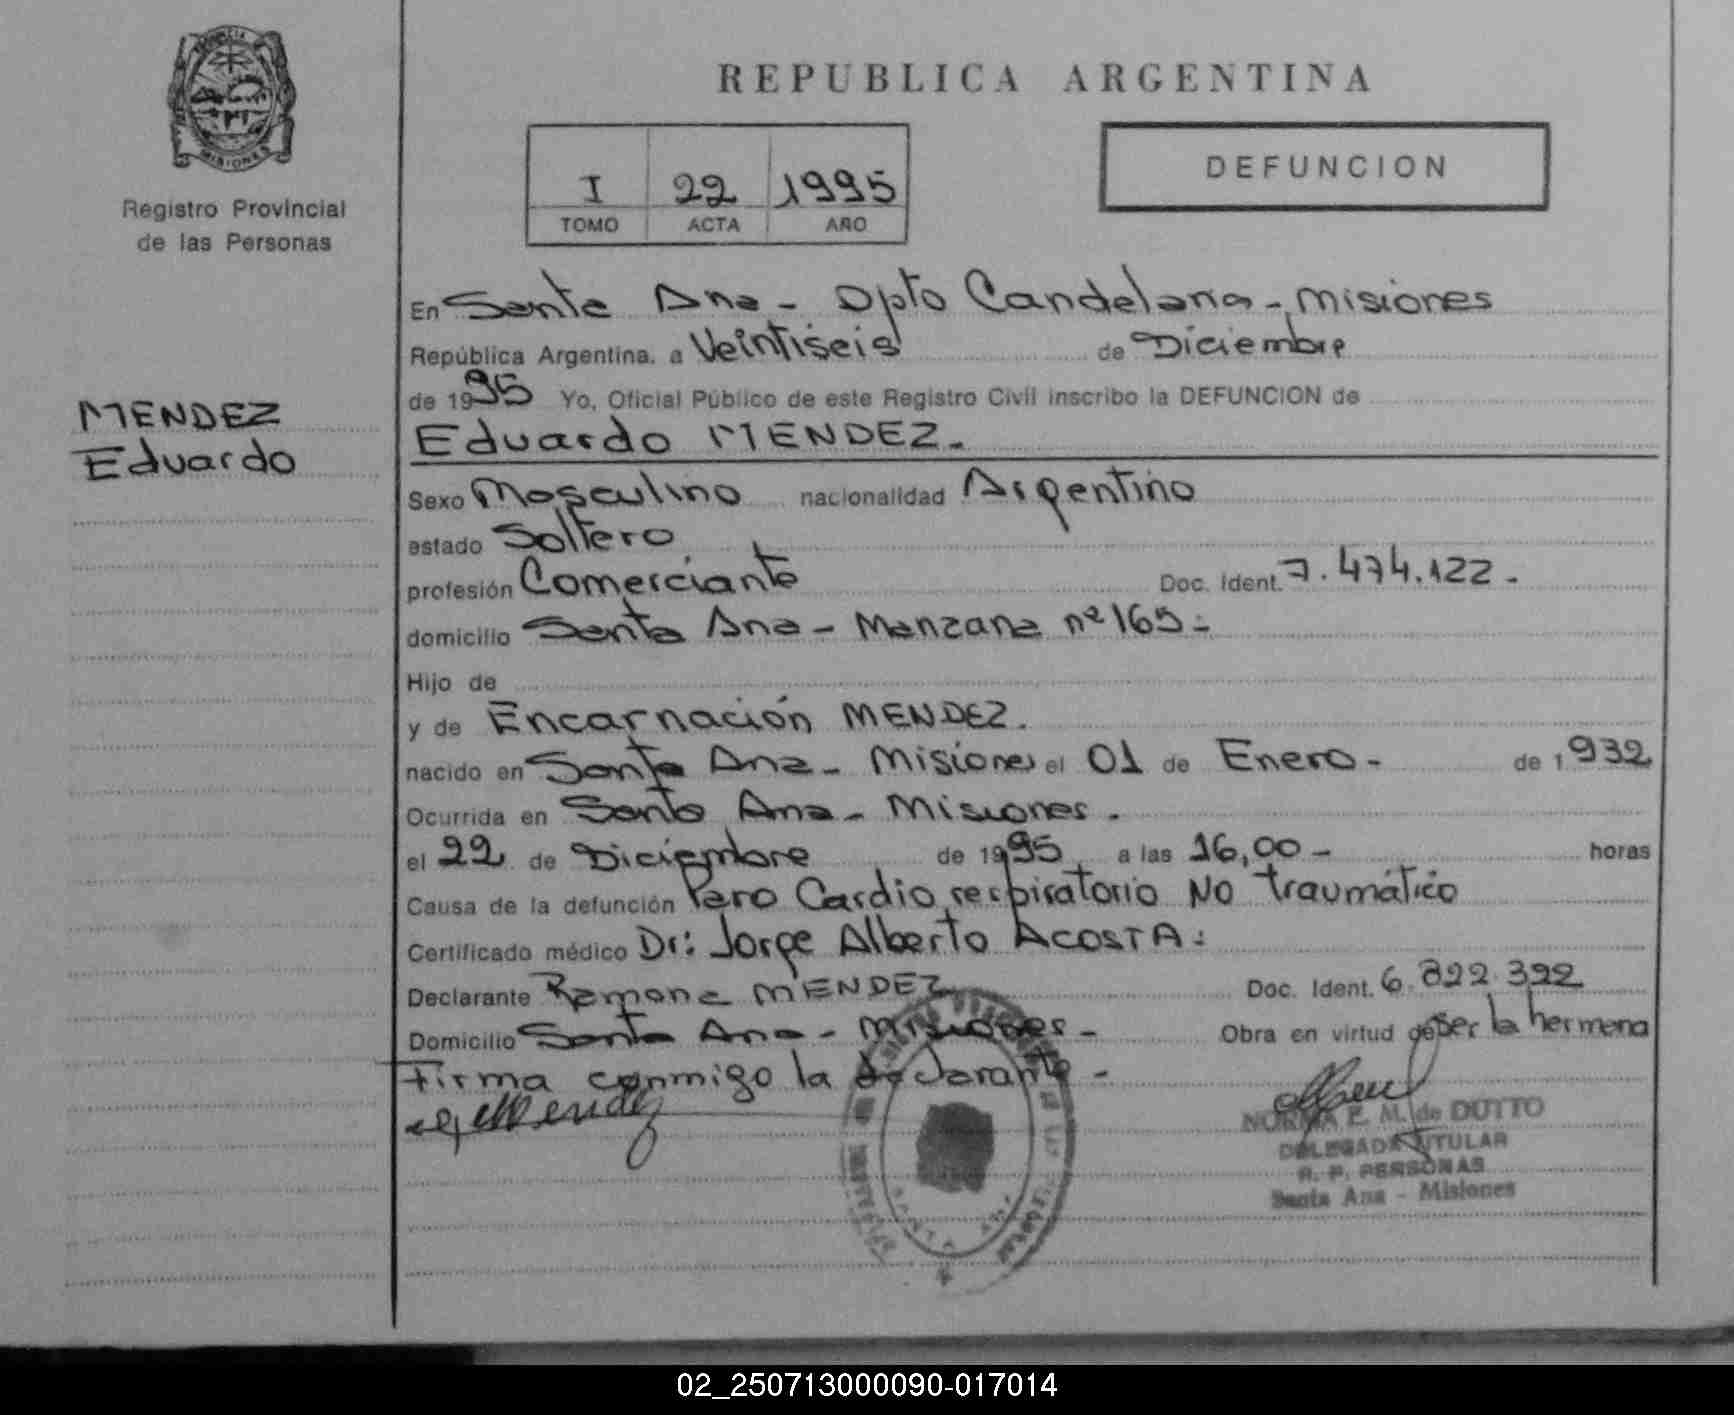 PROVINCIA DE
MISIONES
Registro Provincial
de las Personas
MENDEZ
Eduardo
REPUBLICA ARGENTINA
I 22 1995
TOMO ACTA AÑO
DEFUNCION
En Santa Ana - Dpto Candelaria - Misiones
República Argentina, a Veintiseis de Diciembre
de 1995 Yo, Oficial Público de este Registro Civil inscribo la DEFUNCION de
Eduardo MENDEZ.-
Sexo Masculino nacionalidad Argentino
estado Soltero
profesión Comerciante Doc. Ident. 7.474.122.-
domicilio Santa Ana - Manzana nº 165.-
Hijo de
y de Encarnación MENDEZ.
nacido en Santa Ana - Misiones el 01 de Enero - de 1932
Ocurrida en Santa Ana - Misiones.
el 22 de Diciembre de 1995 a las 16,00 - horas
Causa de la defunción Paro Cardio respiratorio No traumático
Certificado médico Dr: Jorge Alberto ACOSTA:
Declarante Ramona MENDEZ Doc. Ident. 6.822.392
Domicilio Santa Ana - Misiones - Obra en virtud de Ser la hermana
Firma conmigo la declarante -
Mendez
NORMA E. M. de DUTTO
DELEGADA TITULAR
R. P. PERSONAS
Santa Ana - Misiones
02_250713000090-017014